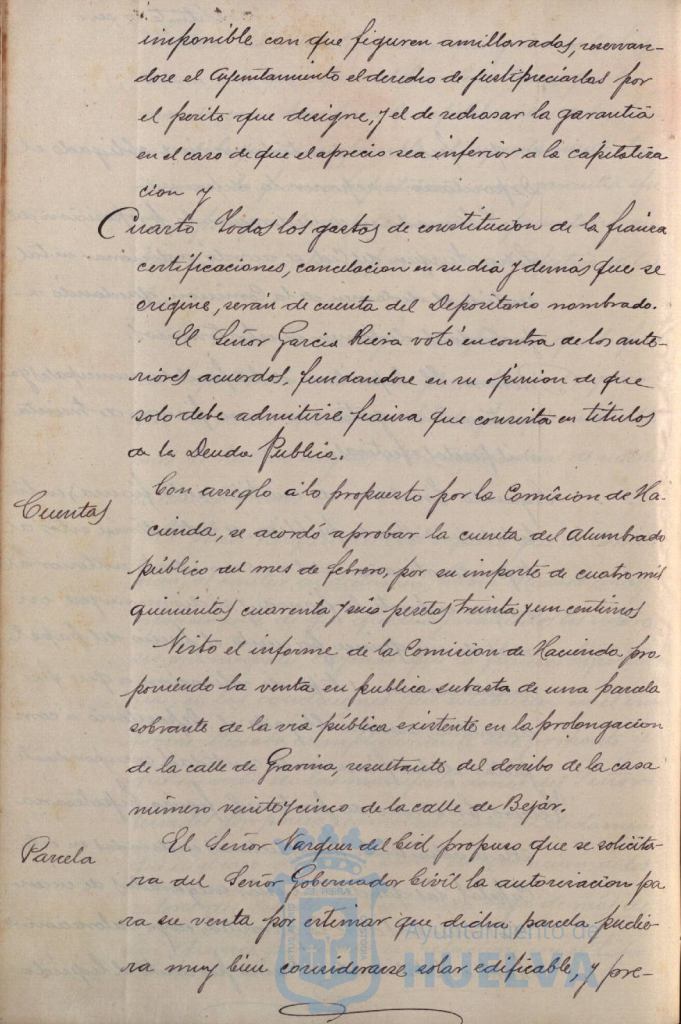 imponible con que figuren amillarados, reservan-
dose el Ayuntamiento el derecho de justipreciarlas por
el perito que designe, y el de rechasar la garantia
en el caso de que el aprecio sea inferior a la capitaliza
cion y
Cuarto Todos los gastos de constitucion de la fianza
certificaciones, cancelacion en su dia y demás que se
origine, serán de cuenta del Depositario nombrado.
El Señor Garcia Riera votó en contra de los ante-
riores acuerdos, fundandose en su opinion de que
solo debe admitirse fianza que consista en titulos
de la Deuda Publica.
Cuentas
Con arreglo á lo propuesto por la Comision de Ha-
cienda, se acordó aprobar la cuenta del Alumbrado
público del mes de febrero, por su importe de cuatro mil
quinientas cuarenta y seis pesetas treinta y un centimos
Visto el informe de la Comision de Hacienda pro
poniendo la venta en publica subasta de una parcela
sobrante de la via pública existente en la prolongacion
de la calle de Gravina, resultante del derribo de la casa
número veinte y cinco de la calle de Bejár.
Parcela
El Señor Vazquez del Cid propuso que se solicita-
ra del Señor Gobernador Civil la autorizacion pa
ra su venta por estimar que dicha parcela pudie-
ra muy bien considerarse solar edificable, y pre-
Ayuntamiento de
HUELVA